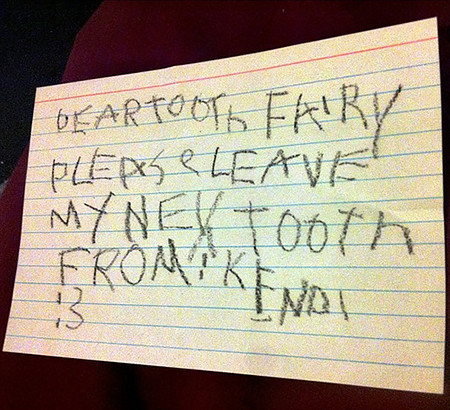 DEAR TOOTh FAIRY
PLEAS e LEAVE
MY NEX TOOTH
FROM: KENDI
:3